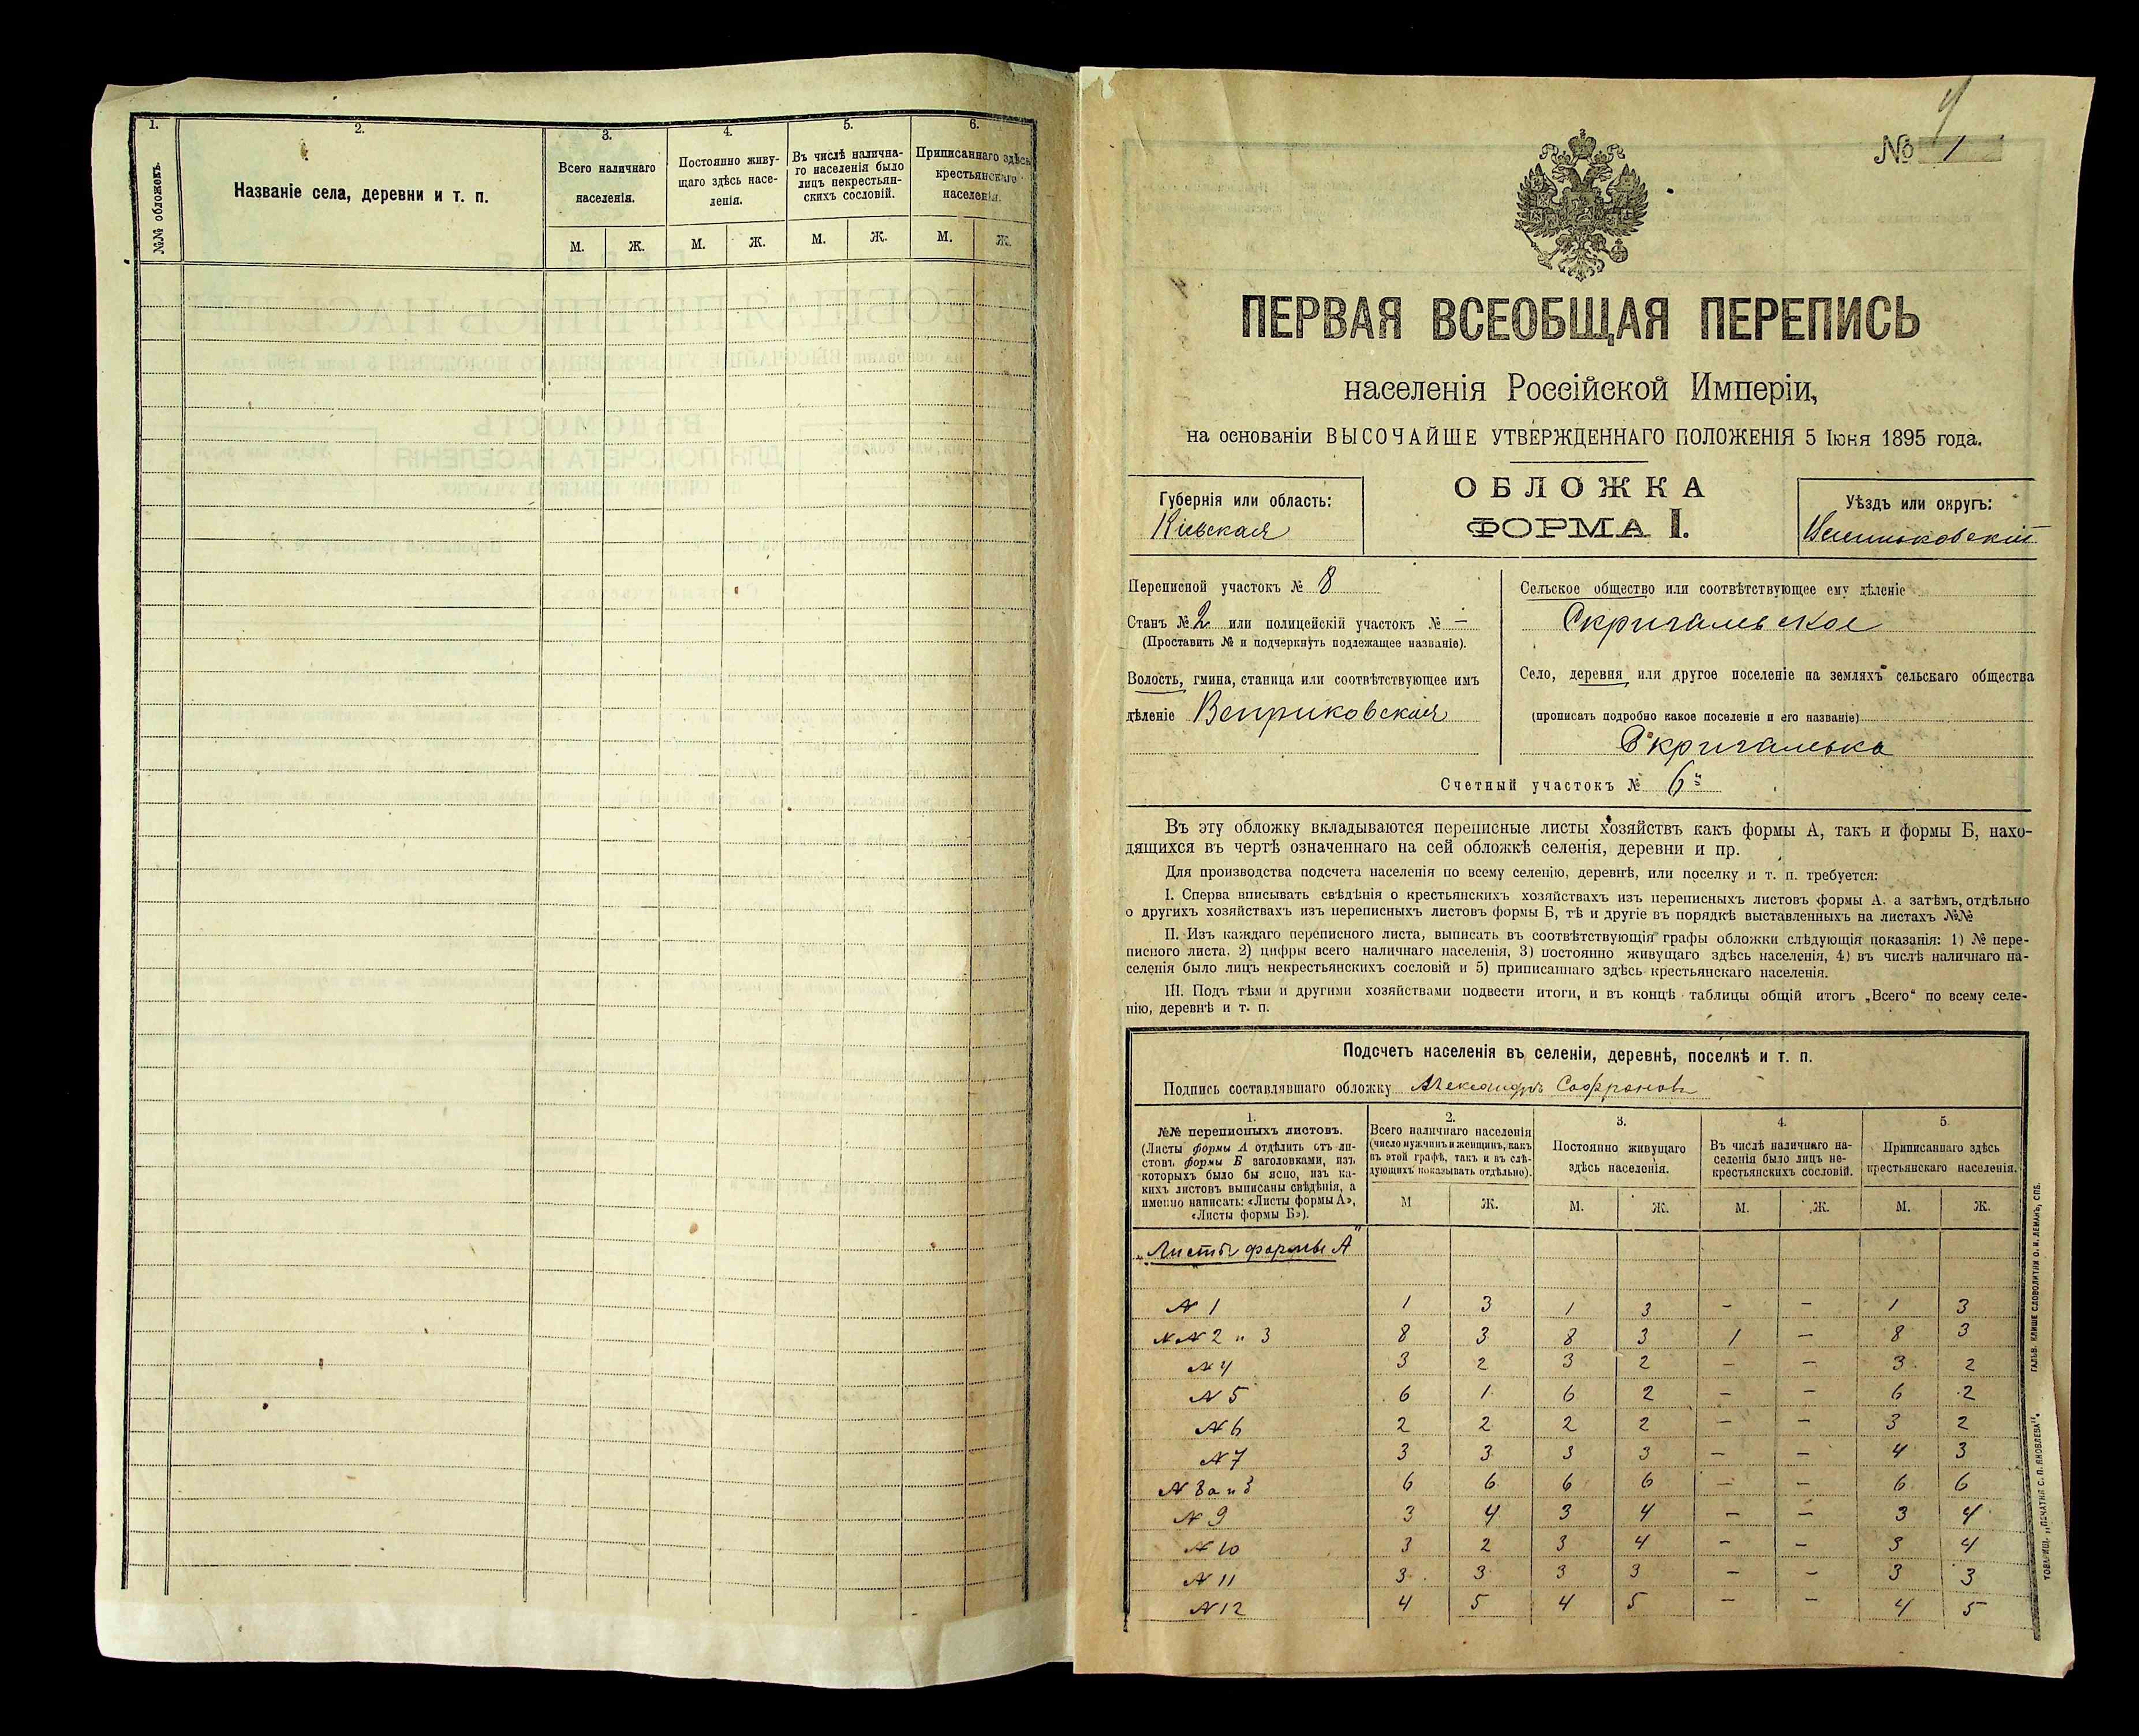 1.
2.
3.
4.
5.
6.
№№ обложекъ.
Названіе села, деревни и т. п.
Всего наличнаго
населенія.
Постоянно живу-
щаго здѣсь насе-
ленія.
Въ числѣ налична-
го населенія было
лицъ некрестьян-
скихъ сословій.
Приписаннаго здѣсь
крестьянскаго
населенія.
М. Ж. М. Ж. М. Ж. М. Ж.
4
№ 1
ПЕРВАЯ ВСЕОБЩАЯ ПЕРЕПИСЬ
населенія Россійской Имперіи,
на основаніи ВЫСОЧАЙШЕ УТВЕРЖДЕННАГО ПОЛОЖЕНІЯ 5 Іюня 1895 года.
ОБЛОЖКА
ФОРМА I.
Губернія или область:
Кіевская
Уѣздъ или округъ:
Васильковскій
Переписной участокъ № 8
Станъ № 2 или полицейскій участокъ № —
(Проставить № и подчеркнуть подлежащее названіе).
Волость, гмина, станица или соотвѣтствующее имъ
дѣленіе Веприковская
Сельское общество или соотвѣтствующее ему дѣленіе
Скригалевское
Село, деревня или другое поселеніе на земляхъ сельскаго общества
(прописать подробно какое поселеніе и его названіе)
Скригалевка
Счетный участокъ № 6й
Въ эту обложку вкладываются переписные листы хозяйствъ какъ формы А, такъ и формы Б, нахо-
дящихся въ чертѣ означеннаго на сей обложкѣ селенія, деревни и пр.
Для производства подсчета населенія по всему селенію, деревнѣ, или поселку и т. п. требуется:
I. Сперва вписывать свѣдѣнія о крестьянскихъ хозяйствахъ изъ переписныхъ листовъ формы А. а затѣмъ, отдѣльно
о другихъ хозяйствахъ изъ переписныхъ листовъ формы Б, тѣ и другіе въ порядкѣ выставленныхъ на листахъ №№
II. Изъ каждаго переписного листа, выписать въ соотвѣтствующія графы обложки слѣдующія показанія: 1) № пере-
писного листа, 2) цифры всего наличнаго населенія, 3) постоянно живущаго здѣсь населенія, 4) въ числѣ наличнаго на-
селенія было лицъ некрестьянскихъ сословій и 5) приписаннаго здѣсь крестьянскаго населенія.
III. Подъ тѣми и другими хозяйствами подвести итоги, и въ концѣ таблицы общій итогъ „Всего“ по всему селе-
нію, деревнѣ и т. п.
Подсчетъ населенія въ селеніи, деревнѣ, поселкѣ и т. п.
Подпись составлявшаго обложку Александръ Сафроновъ
1.
№№ переписныхъ листовъ.
(Листы формы А отдѣлить отъ ли-
стовъ формы Б заголовками, изъ
которыхъ было бы ясно, изъ ка-
кихъ листовъ выписаны свѣдѣнія, а
именно написать: «Листы формы А»,
«Листы формы Б»).
2.
Всего наличнаго населенія
(число мужчинъ и женщинъ, какъ
въ этой графѣ, такъ и въ слѣ-
дующихъ показывать отдѣльно).
3.
Постоянно живущаго
здѣсь населенія.
4.
Въ числѣ наличнаго на-
селенія было лицъ не-
крестьянскихъ сословій.
5
Приписаннаго здѣсь
крестьянскаго населенія.
М Ж. М. Ж. М. Ж. М. Ж.
„Листы формы А“
№ 1 1 3 1 3 — — 1 3
№№ 2 и 3 8 3 8 3 1 — 8 3
№ 4 3 2 3 2 — — 3 2
№ 5 6 1 6 2 — — 6 2
№ 6 2 2 2 2 — — 3 2
№ 7 3 3 3 3 — — 4 3
6 6 6 6 — — 6 6
№ 9 3 4 3 4 — — 3 4
№ 10 3 2 3 4 — — 3 4
№ 11 3 3 3 3 — — 3 3
№ 12 4 5 4 5 — — 4 5
ГАЛЬВ. КЛИШЕ СЛОВОЛИТНИ О. И. ЛЕМАНЪ, СПБ.
ТОВАРИЩ. „ПЕЧАТНЯ С. П. ЯКОВЛЕВА“.